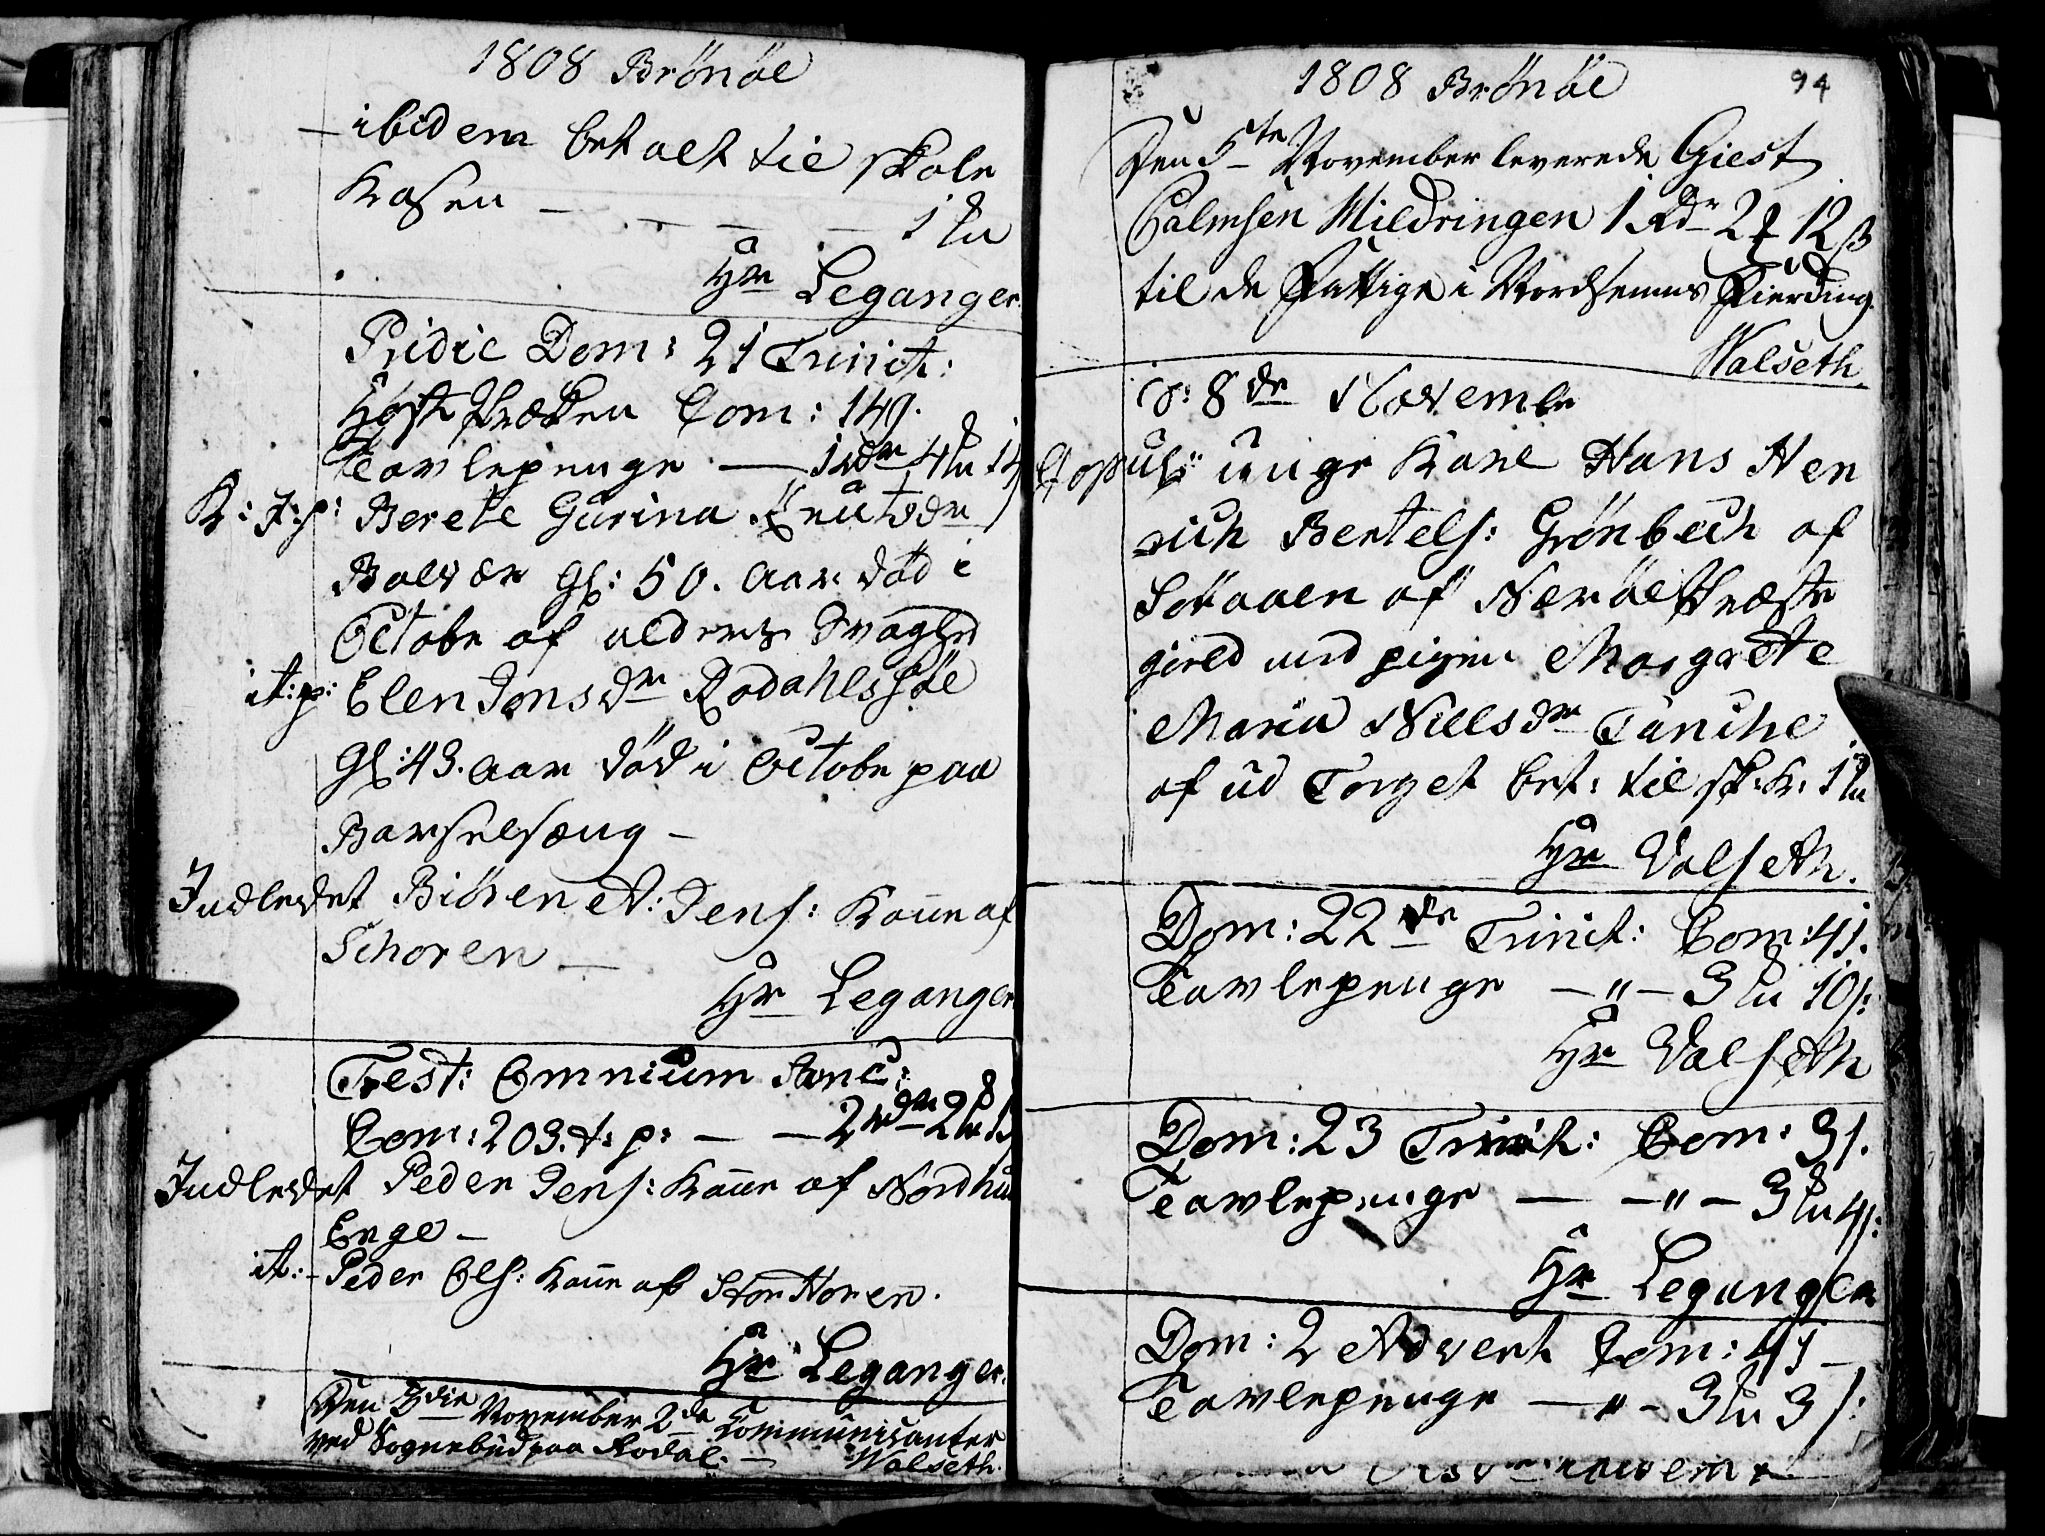 1808 Brönöe
– ibidem betalt til skole
Kasen – – – – 1 
Hr Leganger
Pridie Dom: 21 Trinit:
Höst Præken Com: 149.
Tavlepenge — 1 rdr 4
K: J: p: Berete Gurina Knutsdr
Bolvær Gl: 50. Aar död i
Octobr af alders Svaghd
it: p: Elen Jonsdr Rodahlssöe
Gl: 43. Aar död i Octobr paa
Barselsæng –
Indledet Biören A: Jens: Kone af
Schoren –
Hr Leganger
Fest: Omnium Sanc:
Com: 203. t: p: – – 2 rdr 2
Indledet Peder Jens: Kone af Nordhus
Enge –
it: – Peder Ols: Kone af StorHoren.
Hr Leganger.
Den 3die November 2de Communicanter
ved Sognebud paa Rodal. – Walseth.
1808 Brönöe 94
Den 5te November leverede Giest
Calmsen Mildringen 1 Rdr 2 12 ß
til de Fattige i Nordhuus Fierding.
Walseth.
d: 8de Novembr
Copul: unge Karl Hans Hen
rich Bentels: Grönbech af
Söraaen af Næröe Præste
gield med pigen Margrete
Maria Nielsdr Tünche
af ud Torget bet: til sk: K: 1
Hr Valseth.
Dom: 22de Trinit: Com: 41.
Tavlepenge – " – 3 10 s:
Hr Valseth
Dom: 23 Trinit: Com: 31.
Tavlepenge – – " – 3 4 s:
Hr Leganger
Dom: 2 Advent Com: 41 –
Tavlepenge – " – 3 3 s: